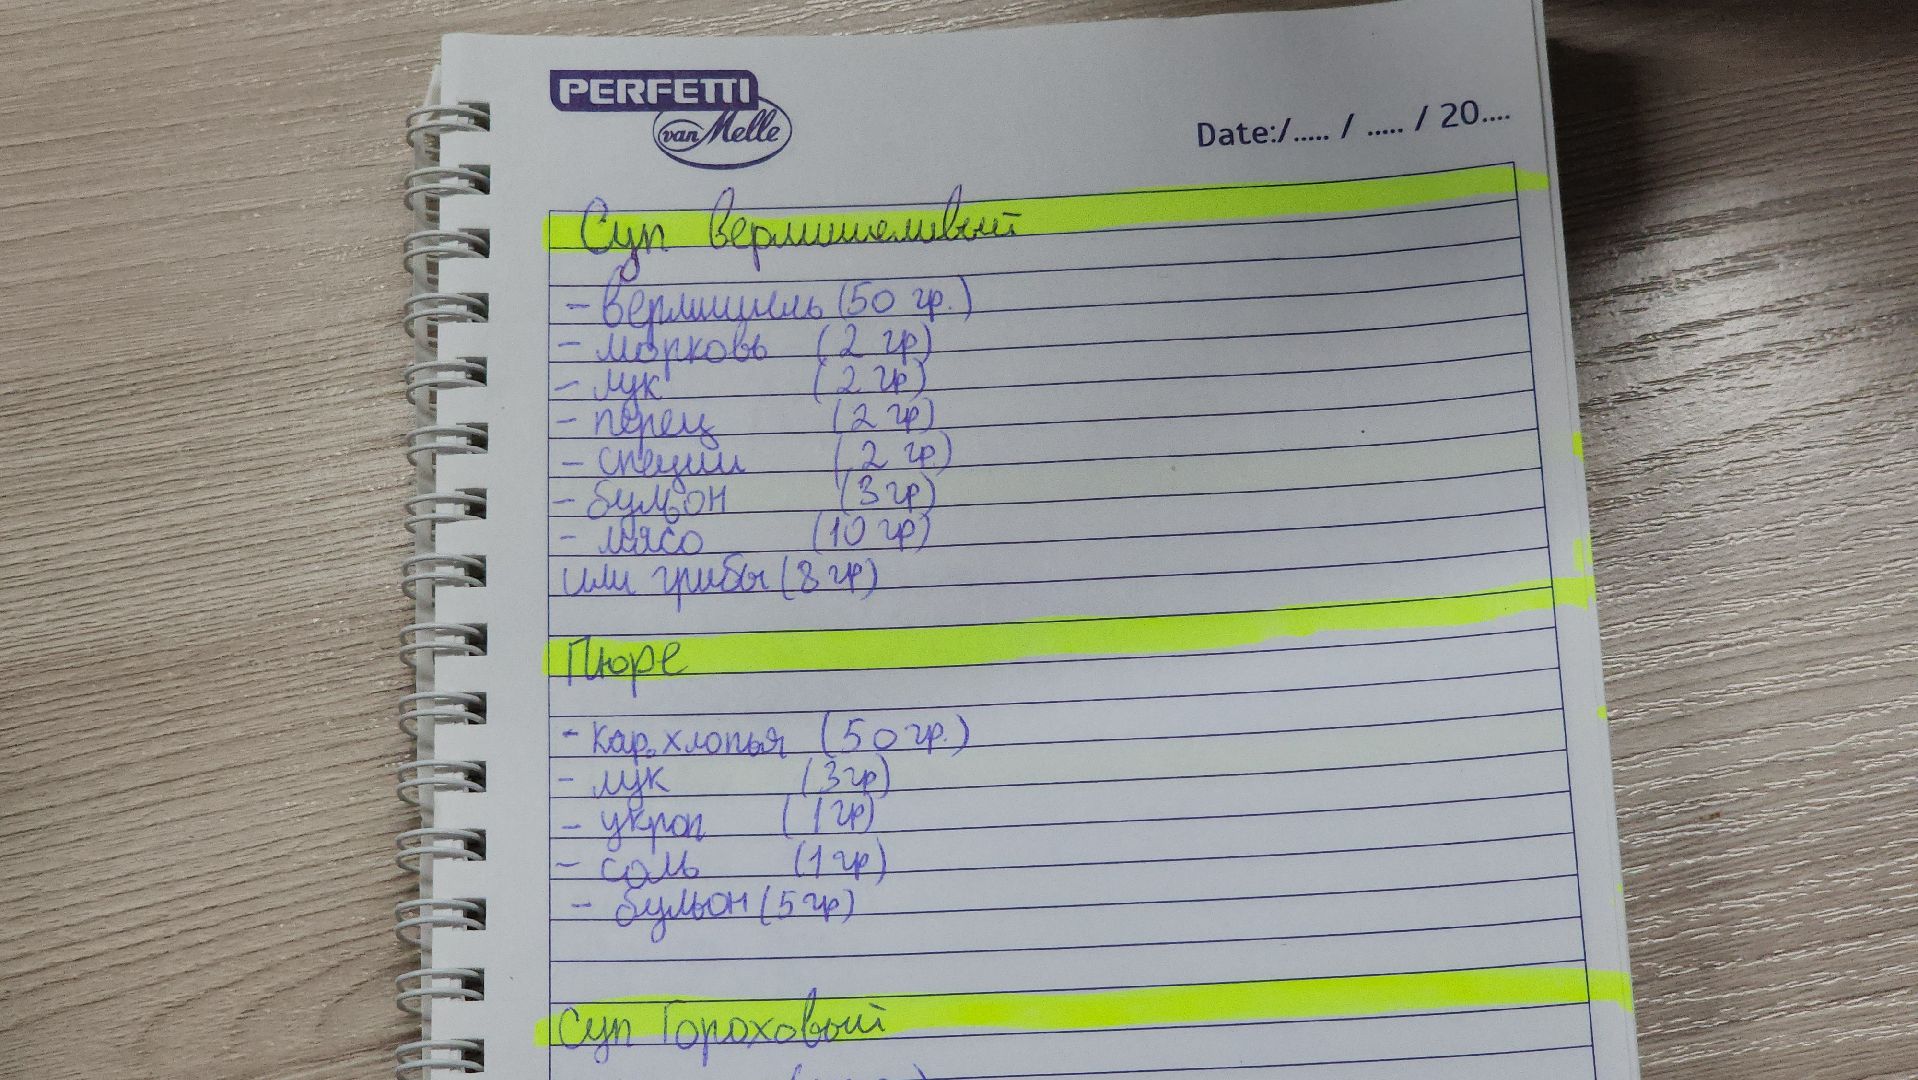 PERFETTI
van Melle
Date:/..... / ..... / 20....
Суп вермишеливый
- вермишель (50 гр.)
- морковь (2 гр)
- лук (2 гр)
- перец (2 гр)
- специи (2 гр.)
- бульон (3 гр)
- мясо (10 гр)
или грибы (8 гр)
Пюре
- кар. хлопья (50 гр.)
- лук (3 гр)
- укроп (1 гр)
- соль (1 гр)
- бульон (5 гр)
Суп Гороховый